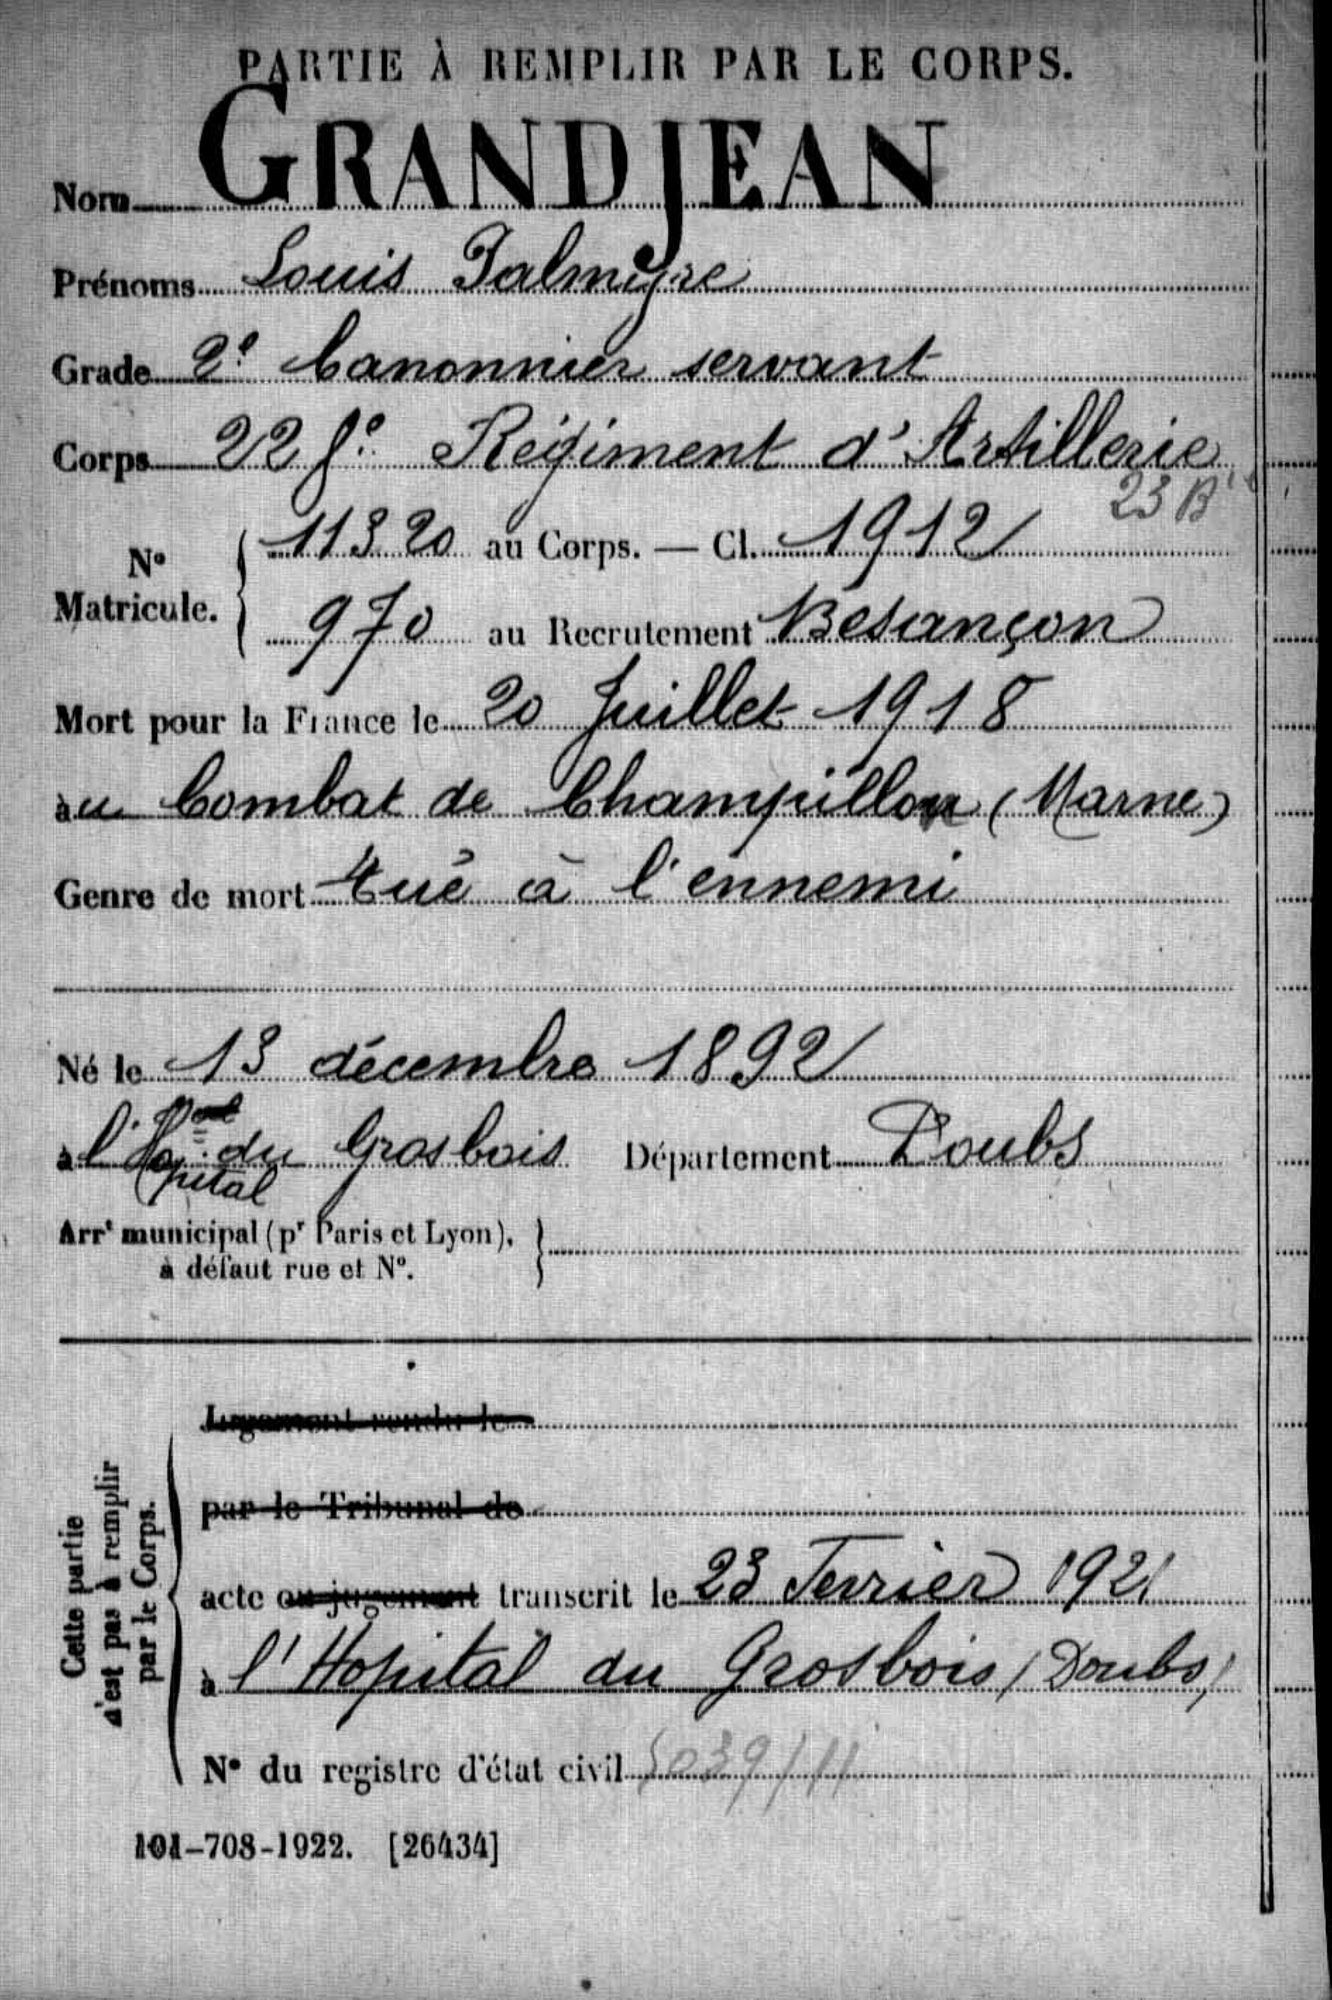 PARTIE À REMPLIR PAR LE CORPS.
Nom GRANDJEAN
Prénoms Louis Palmyre
Grade 2e Canonnier servant
Corps 228e Régiment d'Artillerie
23 Bie
N° Matricule. 11320 au Corps. — Cl. 1912
970 au Recrutement Besançon
Mort pour la France le 20 Juillet 1918
au Combat de Champillon (Marne)
Genre de mort tué à l'ennemi
Né le 13 décembre 1892
à l'Hopital du Grosbois Département Doubs
Arrt municipal (pr Paris et Lyon),
à défaut rue et N°.
Cette partie
n'est pas à remplir
par le Corps.
Jugement rendu le
par le Tribunal de
acte ou jugement transcrit le 23 Fevrier 1921
à l'Hopital du Grosbois (Doubs)
N° du registre d'état civil 5039/11
101-708-1922. [26434]